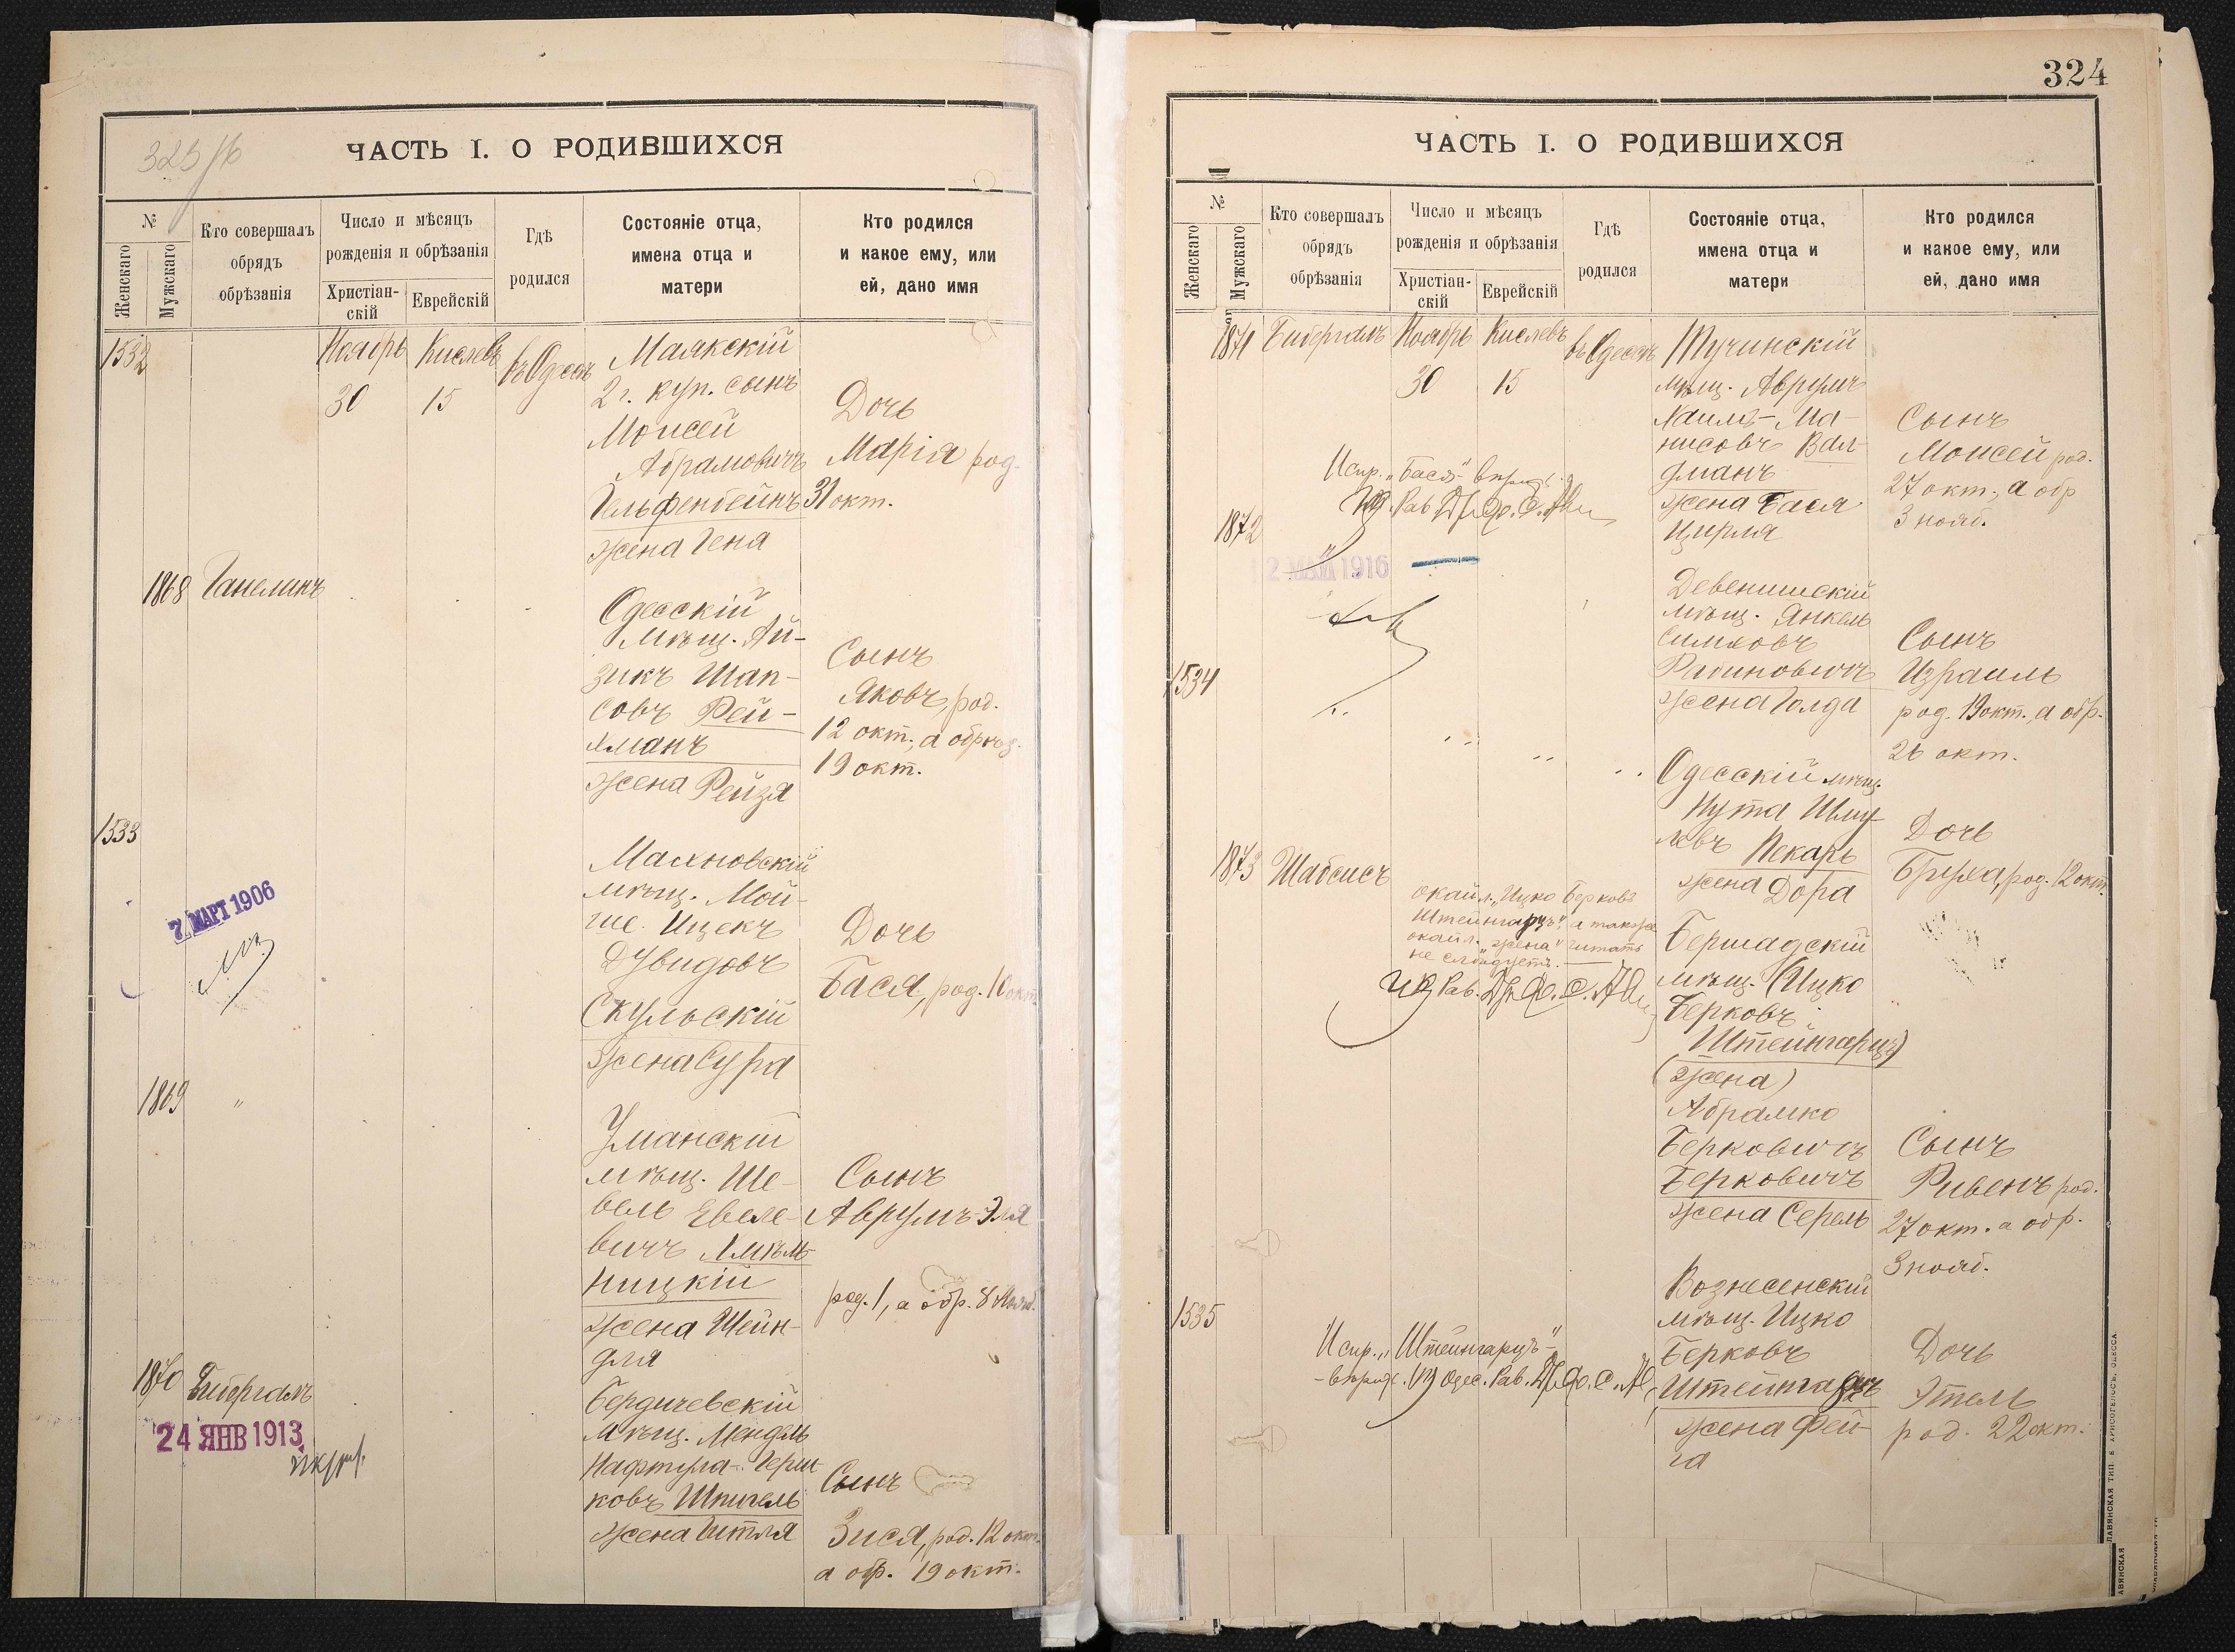 325 об
ЧАСТЬ I. О РОДИВШИХСЯ
№
Женскаго
Мужскаго
Кто совершалъ
обрядъ
обрѣзанія
Число и мѣсяцъ
рожденія и обрѣзанія
Христіан-
скій
Еврейскій
Гдѣ
родился
Состояніе отца,
имена отца и
матери
Кто родился
и какое ему, или
ей, дано имя
1532
Ноябрь
Кислевъ
въ Одессѣ
30
15
Маякскій
2 г. куп. сынъ
Моисей
Абрамовичъ
Гельфенбейнъ
жена Геня
Дочь
Марія род.
31 окт.
1868
Ганелинъ
Одесскій
мѣщ. Ай-
зикъ Шап-
совъ Рей-
жена Рейзя
Сынъ
Яковъ, род.
12 окт., а обрѣз.
19 окт.
1533
7 МАРТ 1906
Махновскій
мѣщ. Мой-
ше Ицекъ
Дувидовъ
Скульскій
жена Сура
Дочь
Бася, род. 10 окт.
1869
"
Уманскій
мѣщ. Ше-
вель Евеле-
вичъ Хмѣль-
ницкій
жена Шейн-
для
Сынъ
Аврумъ-Эля
род. 1, а обр. 8 Нояб.
1870
Бибергалъ
24 ЯНВ 1913
Бердичевскій
мѣщ. Мендель
Нафтула-Герш-
ковъ Шпигель
жена Гитля
Сынъ
Зися, род. 12 окт.
а обр. 19 окт.
324
ЧАСТЬ I. О РОДИВШИХСЯ
№
Женскаго
Мужскаго
Кто совершалъ
обрядъ
обрѣзанія
Число и мѣсяцъ
рожденія и обрѣзанія
Христіан-
скій
Еврейскій
Гдѣ
родился
Состояніе отца,
имена отца и
матери
Кто родился
и какое ему, или
ей, дано имя
1871
Бибергалъ
Ноябрь
Кислевъ
въ Одессѣ
30
15
Тучинскій
мѣщ. Аврумъ
Хаимъ-Ма-
нисовъ Вал-
дманъ
жена Бася
Цирля
Сынъ
Моисей род.
27 окт., а обр
3 нояб.
Испр. „Бася"
Рав.
1872
"
12 МАЙ 1916
Девенишскій
мѣщ. Янкель
Симховъ
Рабиновичъ
жена Голда
Сынъ
Израиль
род. 19 окт., а обр.
26 окт.
1534
Одесскій мѣщ.
Нута Шму-
левъ Пекарь
жена Дора
Дочь
Бруха, род. 12 окт.
1873
Шабсисъ
„Ицко Берковъ
Штейнгарцъ", а также
„жена" читать
не слѣдуетъ.
Рав.
Бершадскій
мѣщ. (Ицко
Берковъ
Штейнгарцъ)
(жена)
Абрамко
Берковичъ
Берковичъ
жена Серель
Сынъ
Рувенъ род.
27 окт. а обр.
3 нояб.
1535
Испр. „Штейнгарцъ"
Одес. Рав.
Вознесенскій
мѣщ. Ицко
Берковъ
Штейнгарцъ
жена Фей-
га
Дочь
Этель
род. 22 окт.